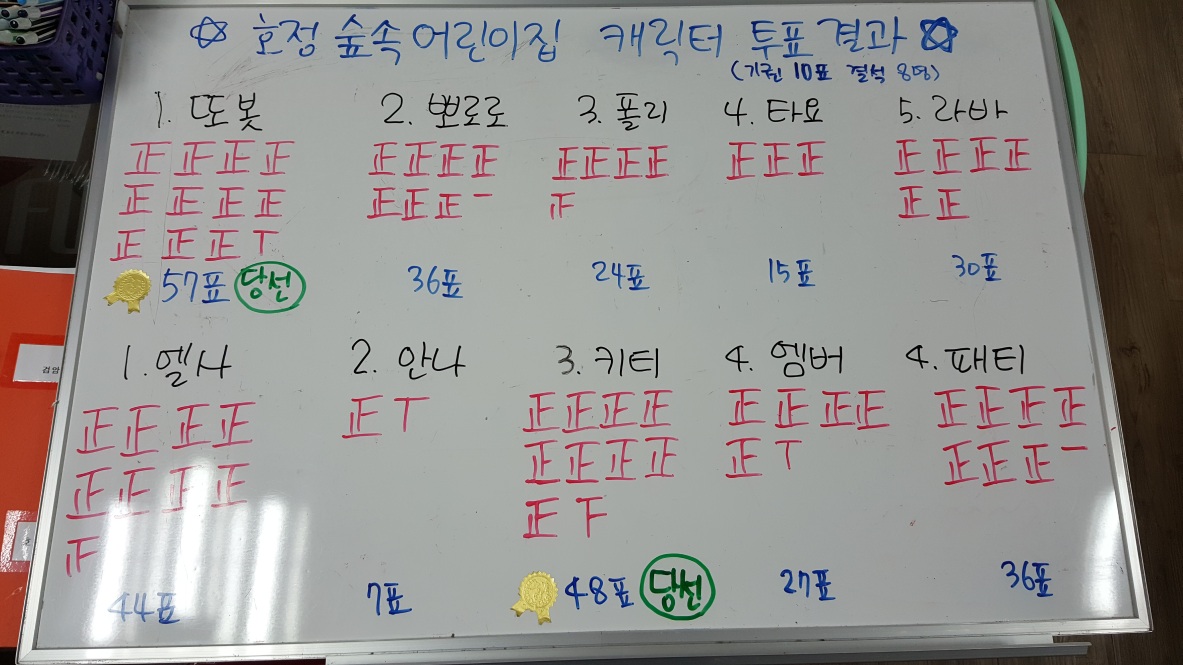 ☆ 호정 숲속어린이집 캐릭터 투표결과 ☆
(기권 10표 결석 8명)
1. 또봇 2. 뽀로로 3. 폴리 4. 타요 5. 라바
正正正正 正正正正 正正正正 正正正 正正正正
正正正正 正正正一 正 正正
正正正丅
57표 당선 36표 24표 15표 30표
1. 엘사 2. 안나 3. 키티 4. 엠버 4. 패티
正正正正 正丅 正正正正 正正正正 正正正正
正正正正 正正正正 正丅 正正正一
正 正下
44표 7표 48표 당선 27표 36표
검암